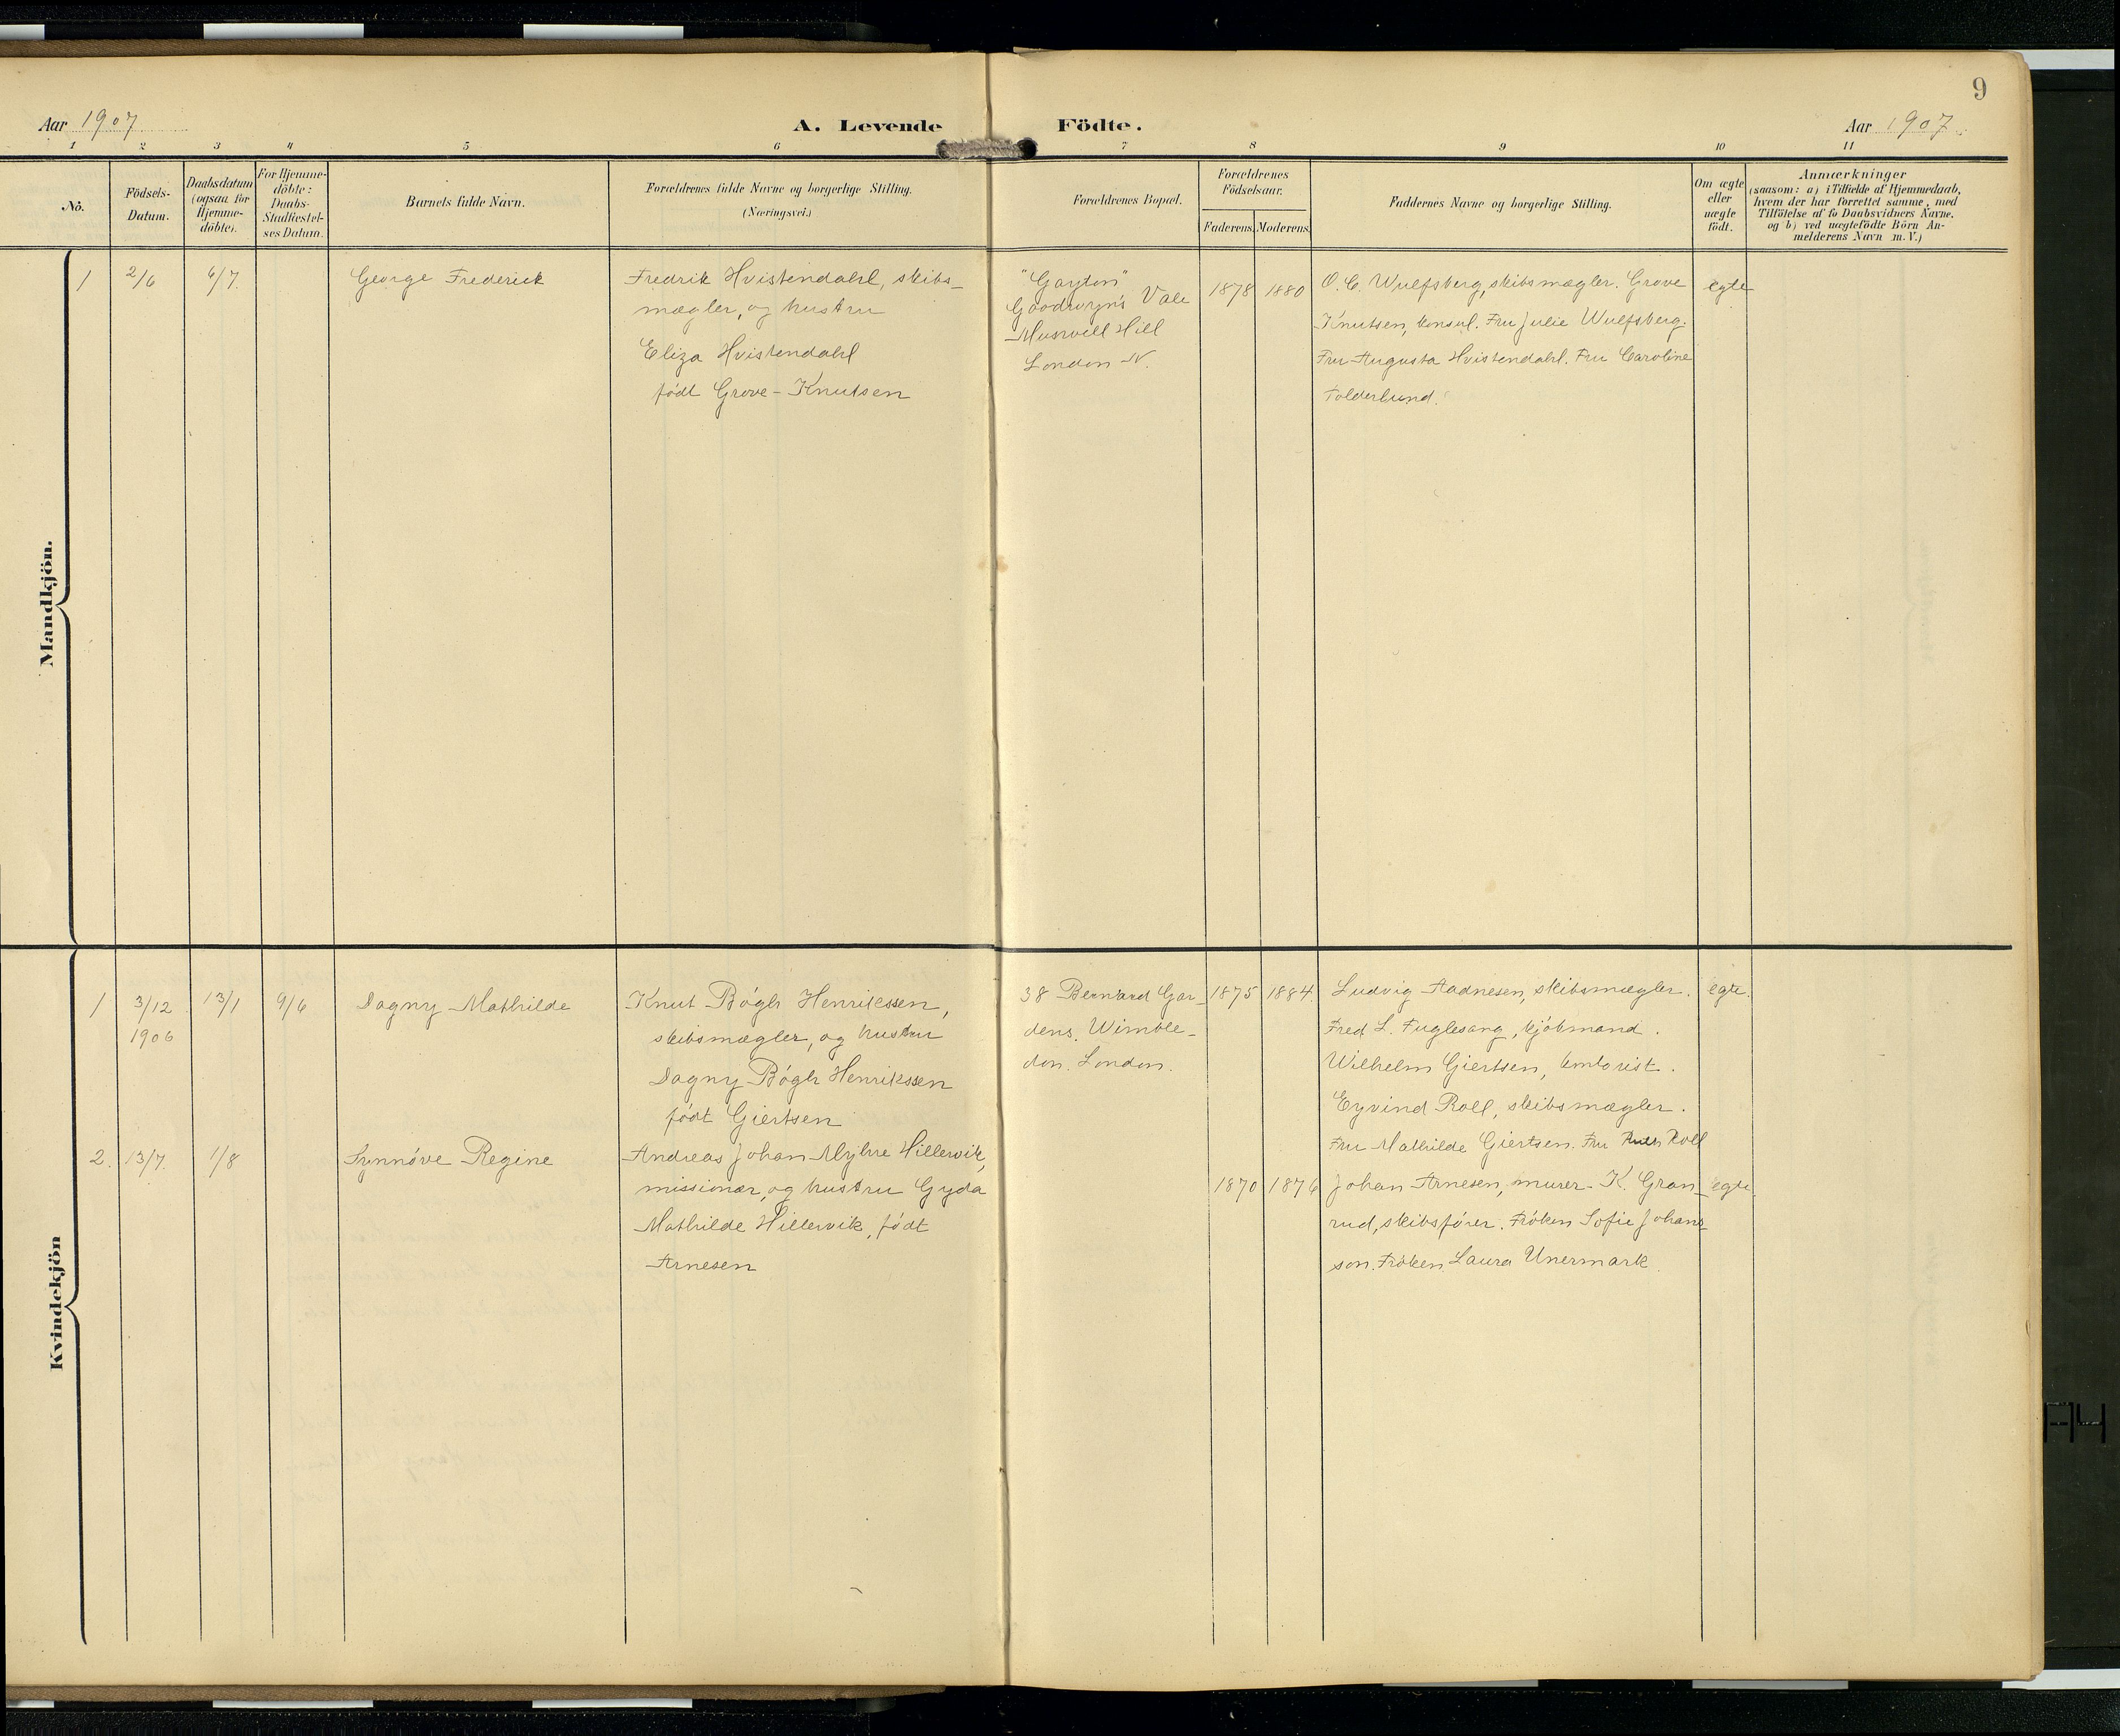 9
Aar 1907
A. Levende Födte.
Aar 1907
1 2 3 4 5 6 7 8 9 10 11
No.
Födsels-
Datum.
Daabsdatum
(ogsaa for
Hjemme-
döbte).
For Hjemme-
döbte:
Daabs-
Stadfæstel-
ses Datum.
Barnets fulde Navn.
Forældrenes fulde Navne og borgerlige Stilling.
(Næringsvei.)
Forældrenes Bopæl.
Forældrenes
Födselsaar.
Faderens. Moderens.
Faddernes Navne og borgerlige Stilling.
Om ægte
eller
uægte
födt.
Anmærkninger
(saasom: a) i Tilfælde af Hjemmedaab,
hvem der har forrettet samme, med
Tilföielse af to Daabsvidners Navne.
og b) ved uægtefödte Börn An-
melderens Navn m. V.)
Mandkjön.
1
2/6
6/7.
George Frederick
Fredrik Hvistendahl, skibs-
mægler, og hustru
Eliza Hvistendahl
født Grove-Knutsen
"Gayton"
Goodwyn's Vale
Muswell Hill
London N.
1878
1880
O. C. Wulfsberg, skibsmægler. Grove
Knutsen, konsul. Fru Julie Wulfsberg.
Fru Augusta Hvistendahl. Fru Caroline
Tolderlund.
egte
Kvindekjön
1
3/12
1906
13/1
9/6
Dagny Mathilde
Knut Bógh Henrikssen,
skibsmægler, og hustru
Dagny Bógh Henrikssen
født Giertsen
38 Bernard Gar-
dens. Wimble-
don. London.
1875
1884.
Ludvig Aadnesen, skibsmægler.
Fred L. Fuglesang, kjøbmand.
Wilhelm Giertsen, kontorist.
Eyvind Roll, skibsmægler.
Fru Mathilde Giertsen. Fru Roll
egte.
2.
13/7.
1/8
Synnóve Regine
Andreas Johan Myhre Hillervik,
missionær, og hustru Gyda
Mathilde Hillervik, født
Arnesen
1870
1876
Johan Arnesen, murer. K. Gran-
rud, skibsfører. Frøken Sofie Johans-
son. Frøken Laura Unermark
egte.